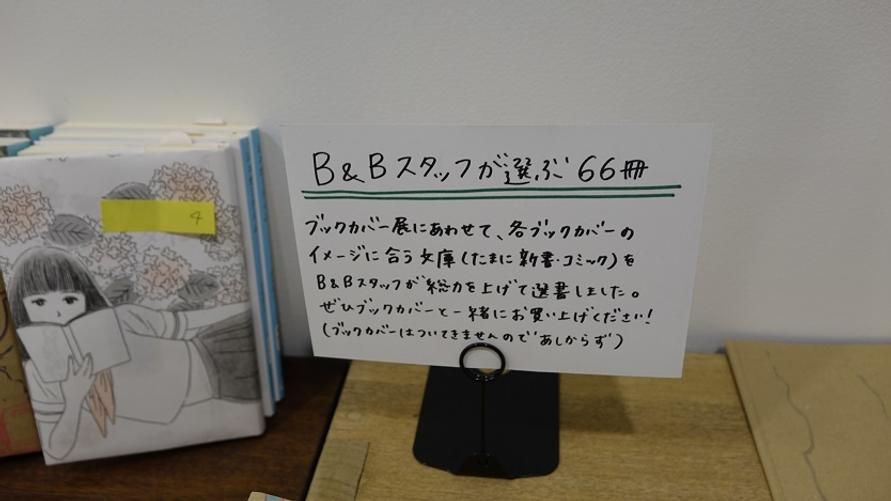 B&Bスタッフが選ぶ66冊
ブックカバー展にあわせて、各ブックカバーの
イメージに合う文庫(たまに新書・コミック)を
B&Bスタッフが総力を上げて選書しました。
ぜひブックカバーと一緒にお買い上げください!
(ブックカバーはついてきませんので、あしからず)
4